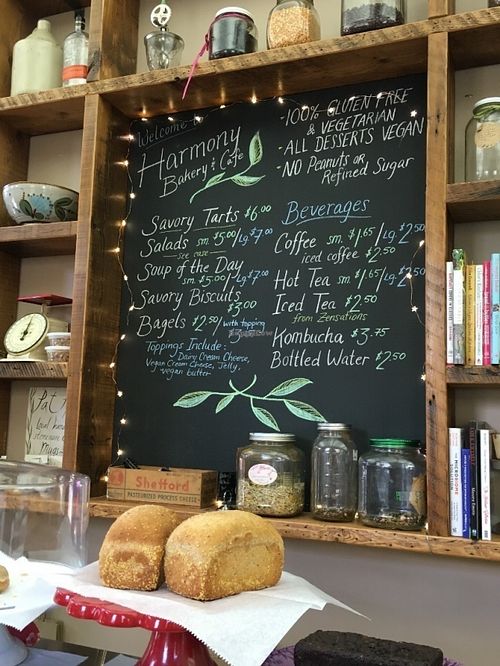 Welcome to
Harmony
Bakery & Cafe
-100% GLUTEN FREE
& VEGETARIAN
-ALL DESSERTS VEGAN
-NO PEANUTS OR
REFINED SUGAR
SAVORY TARTS $6.00
SALADS SM. $5.00/LG. $7.00
see case
SOUP OF THE DAY
SM. $5.00/LG. $7.00
SAVORY BISCUITS
$3.00
BAGELS $2.50/with topping
TOPPINGS INCLUDE:
Dairy Cream Cheese,
Vegan Cream Cheese, Jelly,
vegan butter
Beverages
COFFEE SM. $1.65/LG. $2.50
iced coffee $2.50
HOT TEA SM $1.65/LG. $2.50
ICED TEA $2.50
from Zensations
KOMBUCHA $3.75
BOTTLED WATER $2.50
Shefford
PASTEURIZED PROCESS CHEESE
MICROBIOME